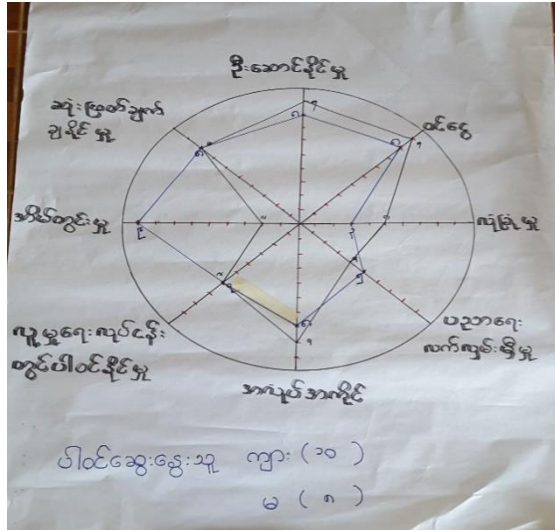 ဦးဆောင်နိုင်မှု
ဆုံးဖြတ်ချက်
ချနိုင်မှု
ဝင်ငွေ
အိမ်တွင်းမှု
လုံခြုံမှု
လူမှုရေးလုပ်ငန်း
တွင်ပါဝင်နိုင်မှု
ပညာရေး
လက်လှမ်းမှီမှု
အလုပ်အကိုင်
ပါဝင်ဆွေးနွေးသူ ကျား (၁၀)
မ (၈)